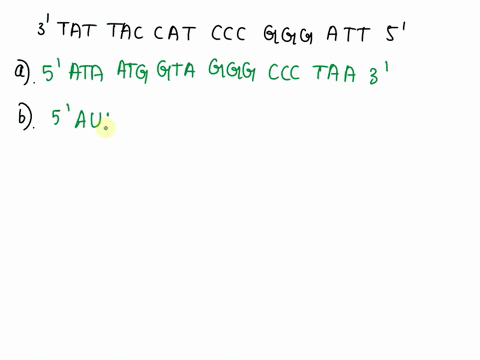 3' TAT TAC CAT CCC GGG ATT 5'
a). 5' ATA ATG GTA GGG CCC TAA 3'
b). 5' AU